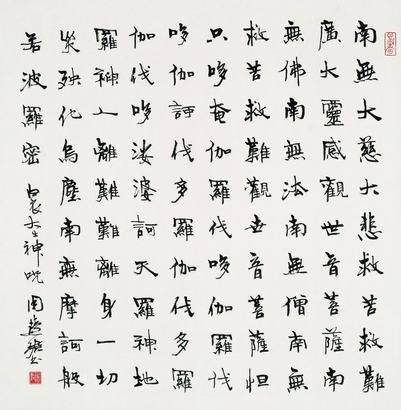 南無大慈大悲救苦救難
廣大靈感觀世音菩薩南
無佛南無法南無僧南無
救苦救難觀世音菩薩怛
只哆唵伽羅伐哆伽羅伐
哆伽訶伐多羅伽伐多羅
伽伐哆娑婆訶天羅神地
羅神人離難難離身一切
災殃化為塵南無摩訶般
若波羅密 白衣大士神咒 周慧珺书